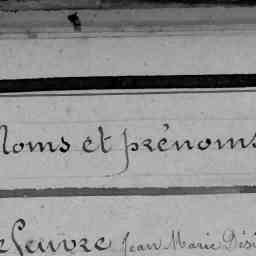 Noms et prénoms
Lefeuvre Jean Marie Dési